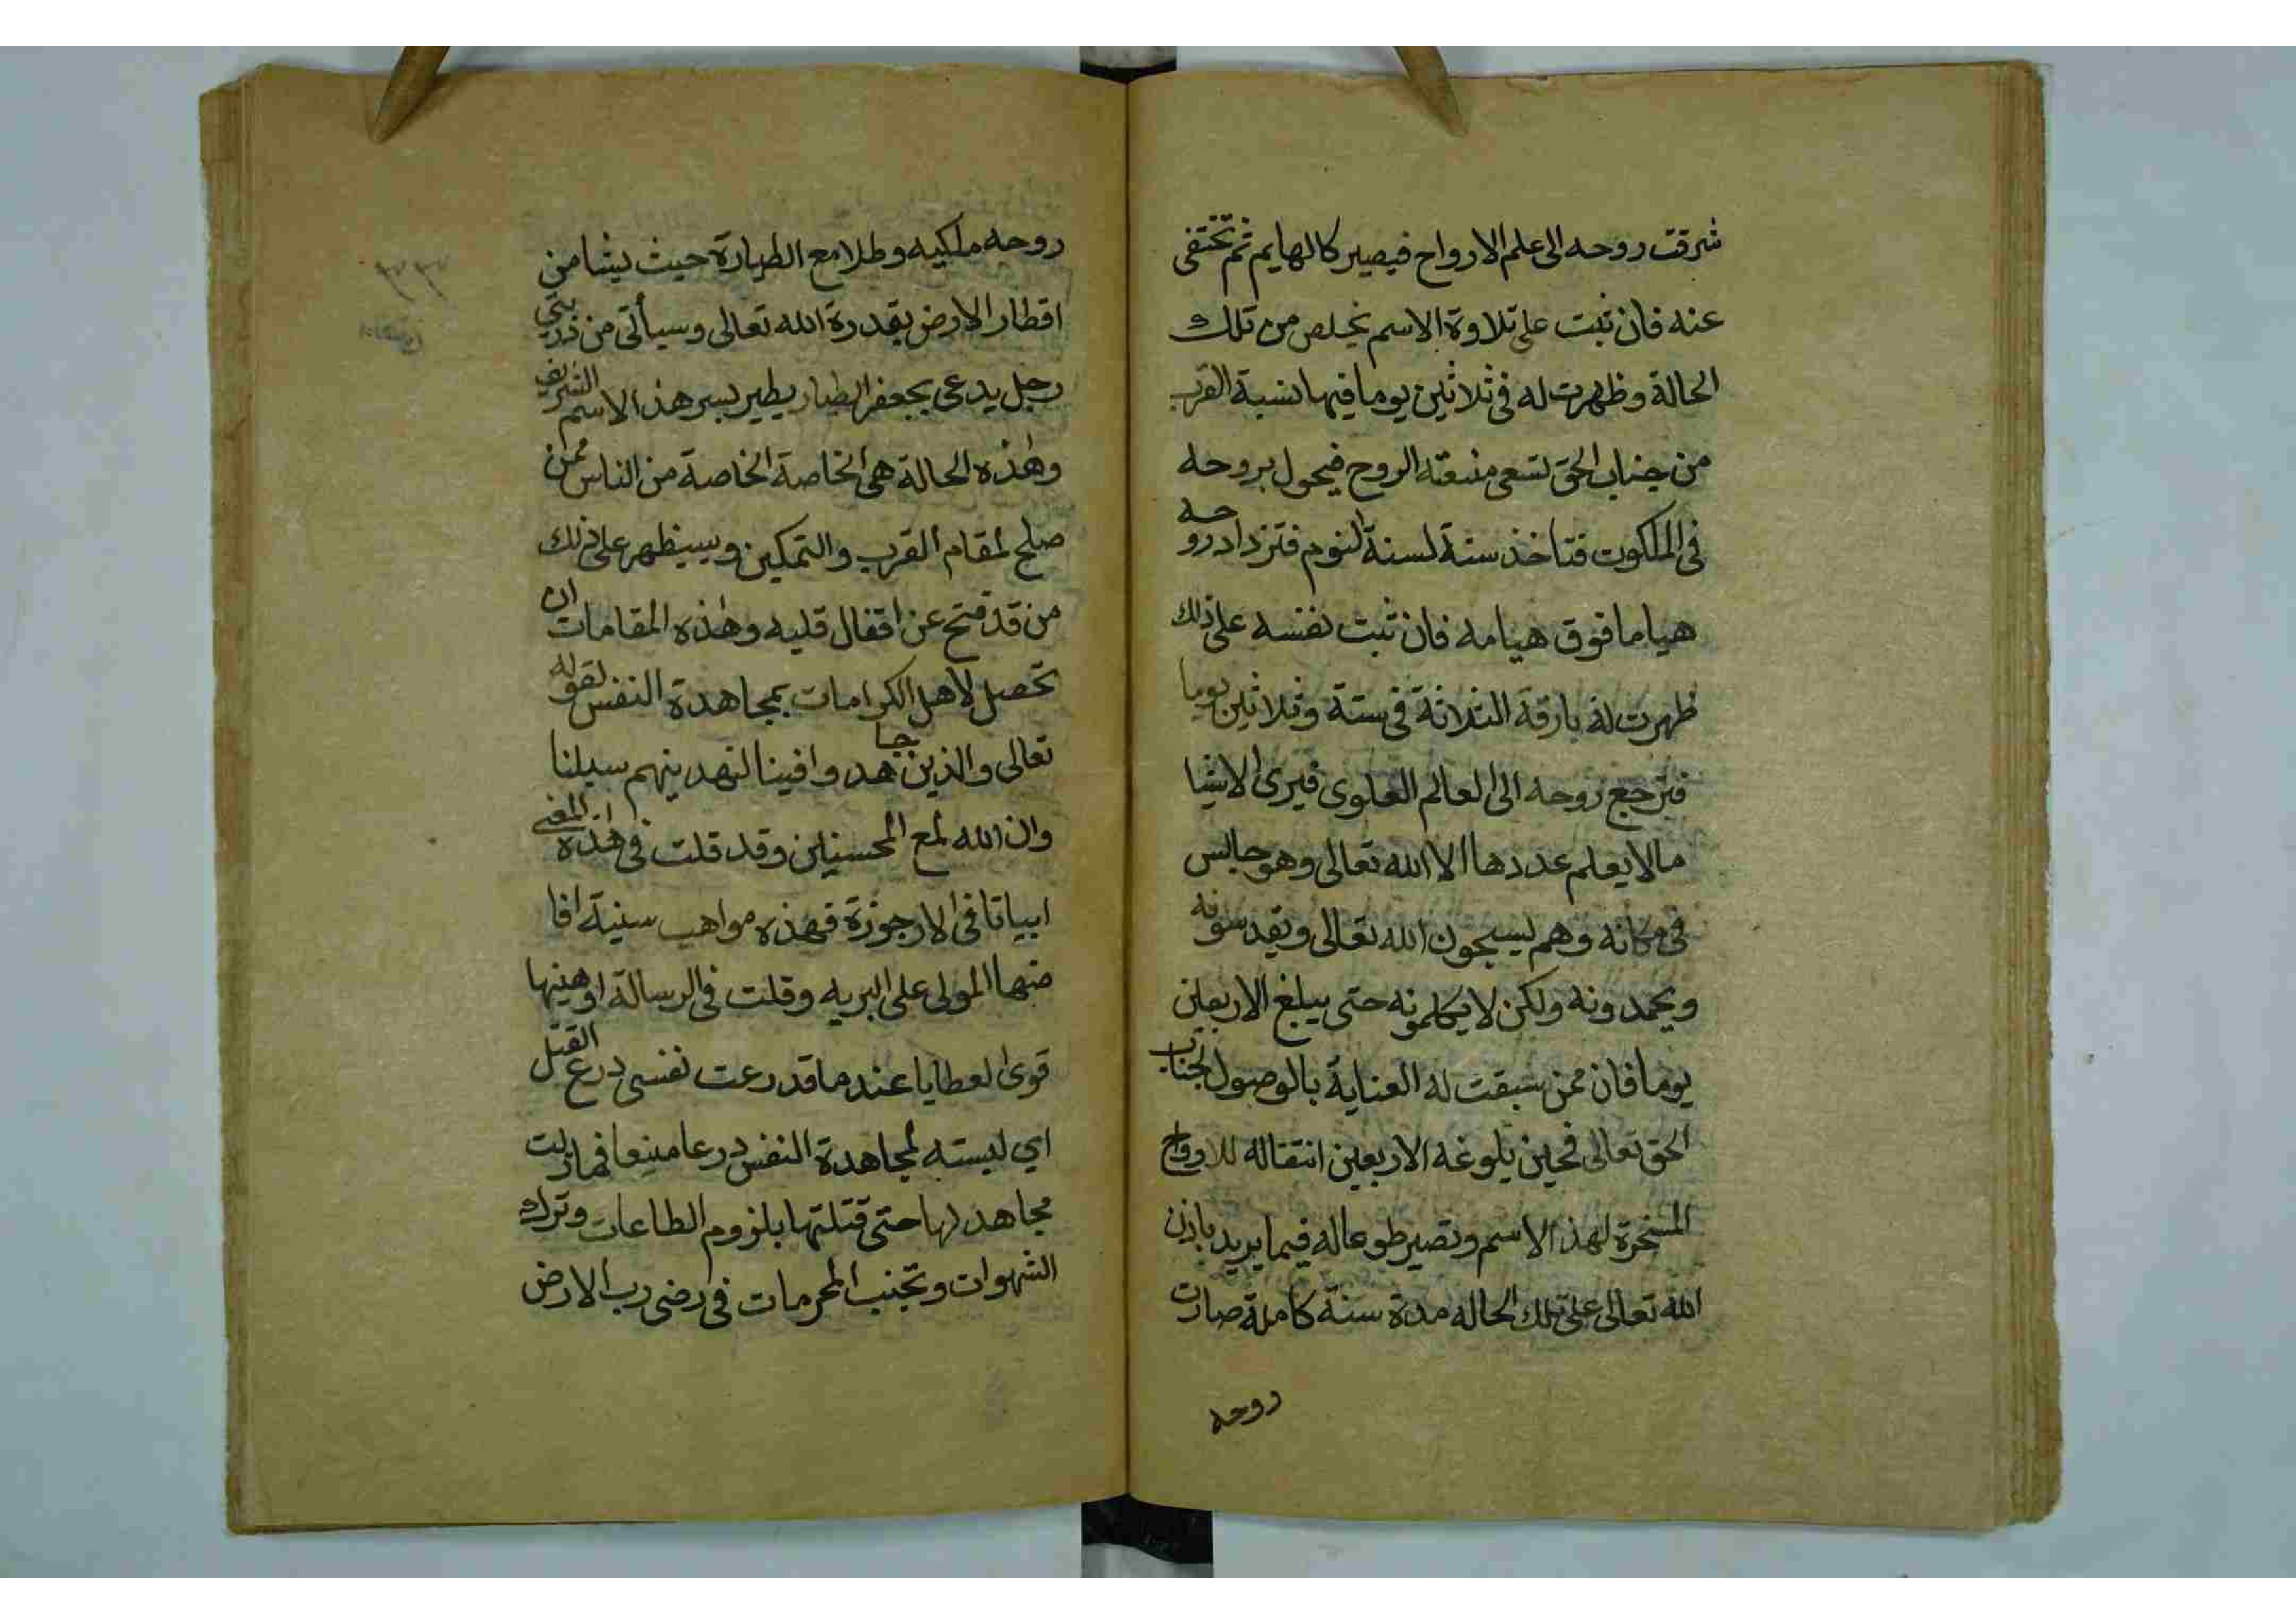 شرقت روحه الى علم الارواح فيصير كالهايم ثم تختفى
عنه فان ثبت على تلاوة الاسم يخلص من تلك
الحالة وظهرت له فى ثلاثين يوما فيها نسبة القرب
من جناب الحق تسعى منبعثه الروح فيحول بروحه
فى الملكوت فتاخذ سنة لسنة النوم فتزداد روحه
هياما فوق هيامه فان ثبت نفسه على ذلك
ظهرت له بارقة الثلاثة فى ستة وثلاثين يوما
فترجع روحه الى العالم العلوى فيرى الاشيا
مالا يعلم عددها الا الله تعالى وهو جالس
فى مكانه وهم يسبحون الله تعالى ويقدسونه
ويحمدونه ولكن لا يكلمونه حتى يبلغ الاربعين
يوما فان ممن سبقت له العناية بالوصول لجناب
الحق تعالى فحين بلوغه الاربعين انتقاله للارواح
المسخرة لهذ الاسم وتصير طوعا له فيما يريد باذن
الله تعالى على تلك الحاله مدة سنة كاملة صارت
روحه
روحه ملكيه وطلا مع الطيارة حيث يشا من
اقطار الارض بقدرة الله تعالى وسيأتى من ذريتى
رجل يدعى بجعفر الطيار يطير بسر هذ الاسم الشريف
وهذه الحالة هى الخاصة الخاصة من الناس ممن
صلح لمقام القرب والتمكين وسيظهر على ذلك
من قد فتح عن اقفال قلبه وهذه المقامات ان
تحصل لاهل الكرامات بمجاهدة النفس لقوله
تعالى والذين جاهدوا فينا لنهدينهم سبلنا
وان الله لمع المحسنين وقد قلت فى هذه المعنى
ابياتا فى الارجوزة فهذه مواهب سنية افا
ضها المولى على البريه وقلت فى الرسالة اوهبنها
قوى العطايا عند ما قد رعت نفسى درع القتل
اي لبسته لمجاهدة النفس درعا منيعا فما زلت
مجاهد لها حتى قتلتها بلزوم الطاعات وترك
الشهوات وتجنب المحرمات فى رضى رب الارض